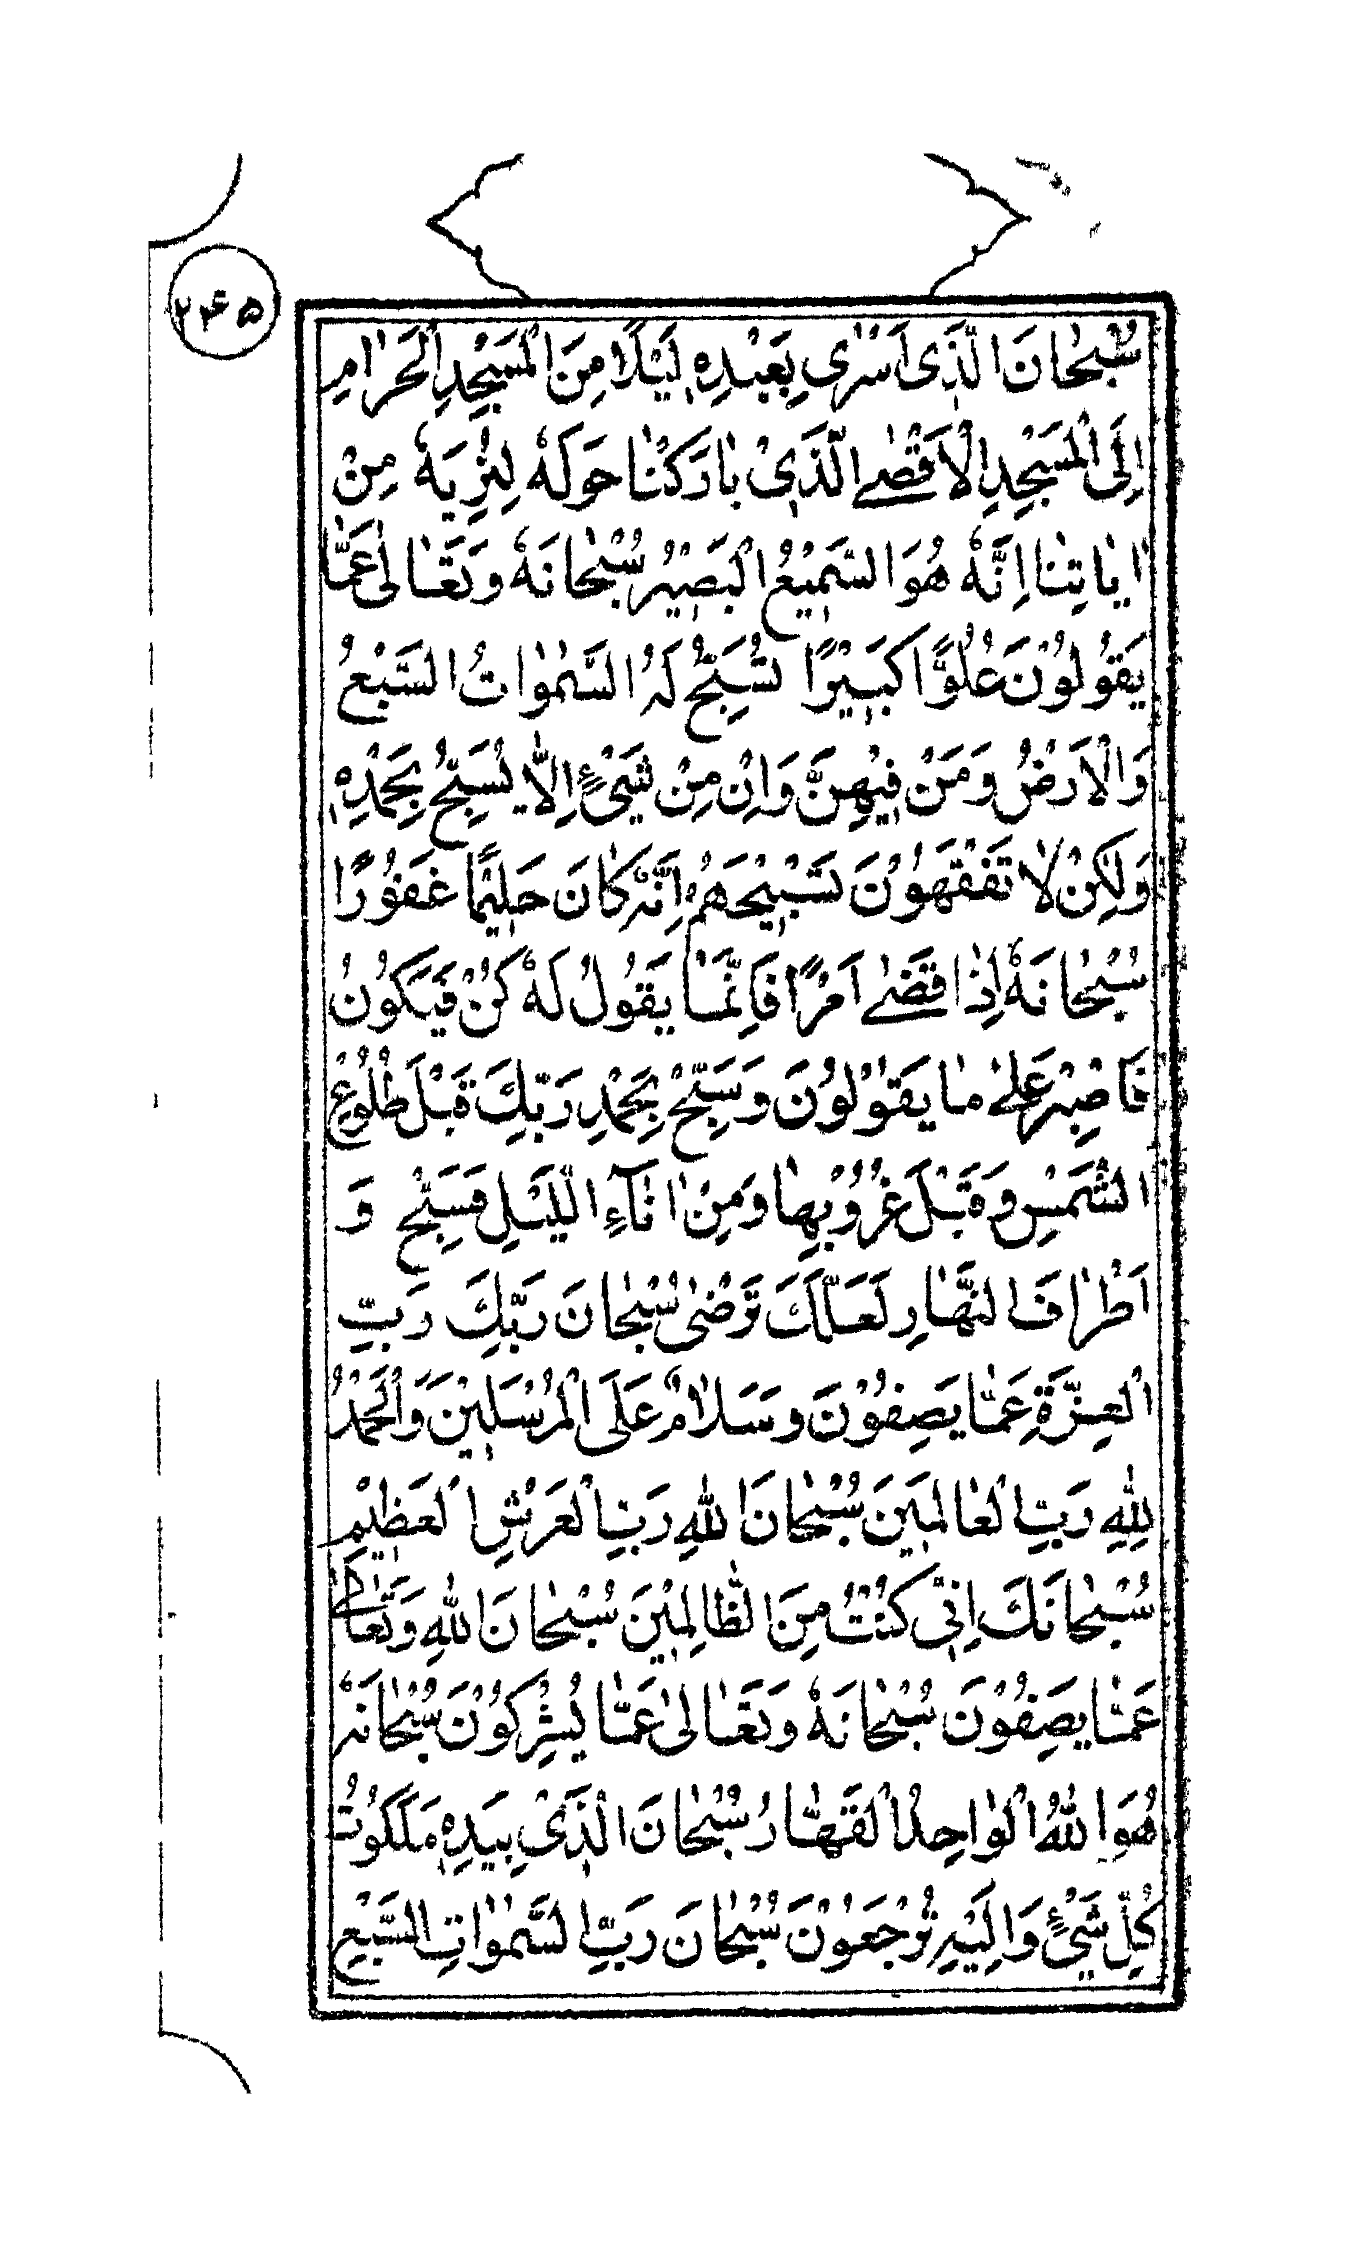 ۲۴۵
سُبْحانَ الَّذَى اَسْرٰى بِعَبْدِهٖ لَيْلًا مِنَ الْمَسْجِدِ الْحَرٰامِ
اِلَى الْمَسْجِدِ الْاَقْصٰى الَّذَىْ بٰارَكْنٰا حَوْلَهٗ لِنُرِيَهٗ مِنْ
اٰيٰاتِنٰا اِنَّهٗ هُوَ السَّمٖيْعُ الْبَصٖيْرُ سُبْحٰانَهٗ وَتَعٰالىٰ عَمّٰا
يَقُوْلُوْنَ عُلُوًّا كَبٖيْرًا تُسَبِّحُ لَهُ السَّمٰوٰاتُ السَّبْعُ
وَالْاَرَضُ وَمَنْ فٖيْهِنَّ وَاِنْ مِنْ شَىْءٍ اِلّٰا يُسَبِّحُ بِحَمْدِهٖ
وَلٰكِنْ لٰا تَفْقَهُوْنَ تَسْبٖيْحَهُمْ اِنَّهٗ كٰانَ حَلٖيْمًا غَفُوْرًا
سُبْحٰانَهٗ اِذٰا قَضٰى اَمْرًا فَاِنَّمٰا يَقُوْلُ لَهٗ كُنْ فَيَكُوْنُ
فَاصْبِرْ عَلىٰ مٰا يَقُوْلُوْنَ وَسَبِّحْ بِحَمْدِ رَبِّكَ قَبْلَ طُلُوْعِ
الشَّمْسِ وَقَبْلَ غُرُوْبِهٰا وَمِنْ اٰنٰآءِ اللَّيْلِ فَسَبِّحْ وَ
اَطْرٰافَ النَّهٰارِ لَعَلَّكَ تَرْضٰى سُبْحٰانَ رَبِّكَ رَبِّ
الْعِزَّةِ عَمّٰا يَصِفُوْنَ وَسَلٰامٌ عَلَى الْمُرْسَلٖيْنَ وَالْحَمْدُ
لِلّٰهِ رَبِّ الْعٰالَمٖيْنَ سُبْحٰانَ اللّٰهِ رَبِّ الْعَرْشِ الْعَظٖيْمِ
سُبْحٰانَكَ اِنّٖى كُنْتُ مِنَ الظّٰالِمٖيْنَ سُبْحٰانَ اللّٰهِ وَتَعٰالىٰ
عَمّٰا يَصِفُوْنَ سُبْحٰانَهٗ وَتَعٰالىٰ عَمّٰا يُشْرِكُوْنَ سُبْحٰانَهٗ
هُوَ اللّٰهُ الْوٰاحِدُ الْقَهّٰارُ سُبْحٰانَ الَّذٖىْ بِيَدِهٖ مَلَكُوْتُ
كُلِّ شَىْءٍ وَاِلَيْهِ تُرْجَعُوْنَ سُبْحٰانَ رَبِّ السَّمٰوٰاتِ السَّبْعِ